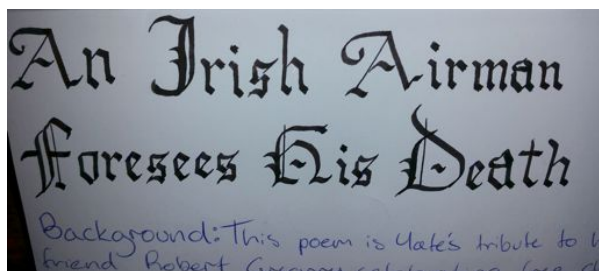 An Irish Airman
Foresees His Death
Background: This poem is Yate's tribute to
friend Robert Gregory